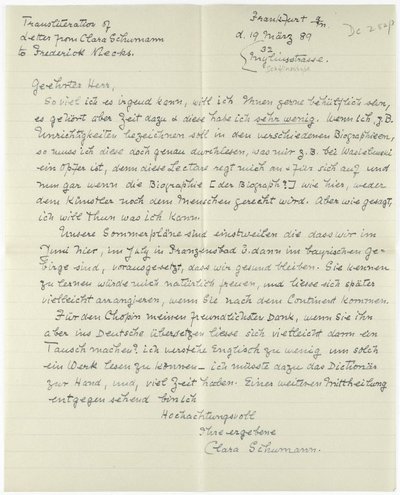 Transliteration of
Letter from Clara Schumann
to Frederick Niecks.
Frankfurt a/m.
d. 19 März 89
32
Myliusstrasse.
Geehrter Herr,
So viel ich es irgend kann, will ich Ihnen gerne behülflich sein,
es gehört aber Zeit dazu & diese habe ich sehr wenig. Wenn ich z.B.
Unrichtigkeiten bezeichnen soll in den verschiedenen Biographieen,
so muss ich diese doch genau durchlesen, was mir z.B. bei Wasielewski
ein Opfer ist, denn diese Lecture regt mich an & für sich auf und
nun gar wenn die Biographie [der Biograph?] wie hier, weder
dem Künstler noch dem Menschen gerecht wird. Aber wie gesagt,
ich will thun was ich kann.
Unsere Sommerpläne sind einstweilen die dass wir im
Juni hier, im July in Franzensbad & dann im bayrischen Ge-
birge sind, vorausgesetzt, dass wir gesund bleiben. Sie kennen
zu lernen würde mich natürlich freuen, und liesse sich später
vielleicht arrangieren, wenn Sie nach dem Continent kommen.
Für den Chopin meinen freundlichsten Dank, wenn Sie ihn
aber ins Deutsche übersetzen liesse sich vielleicht dann ein
Tausch machen? ich verstehe Englisch zu wenig um solch
ein Werk lesen zu können – ich müsste dazu das Dictionär
zur Hand, und, viel Zeit haben. Einer weiteren Mittheilung
entgegen sehend bin ich
Hochachtungsvoll
Ihre ergebene
Clara Schumann.